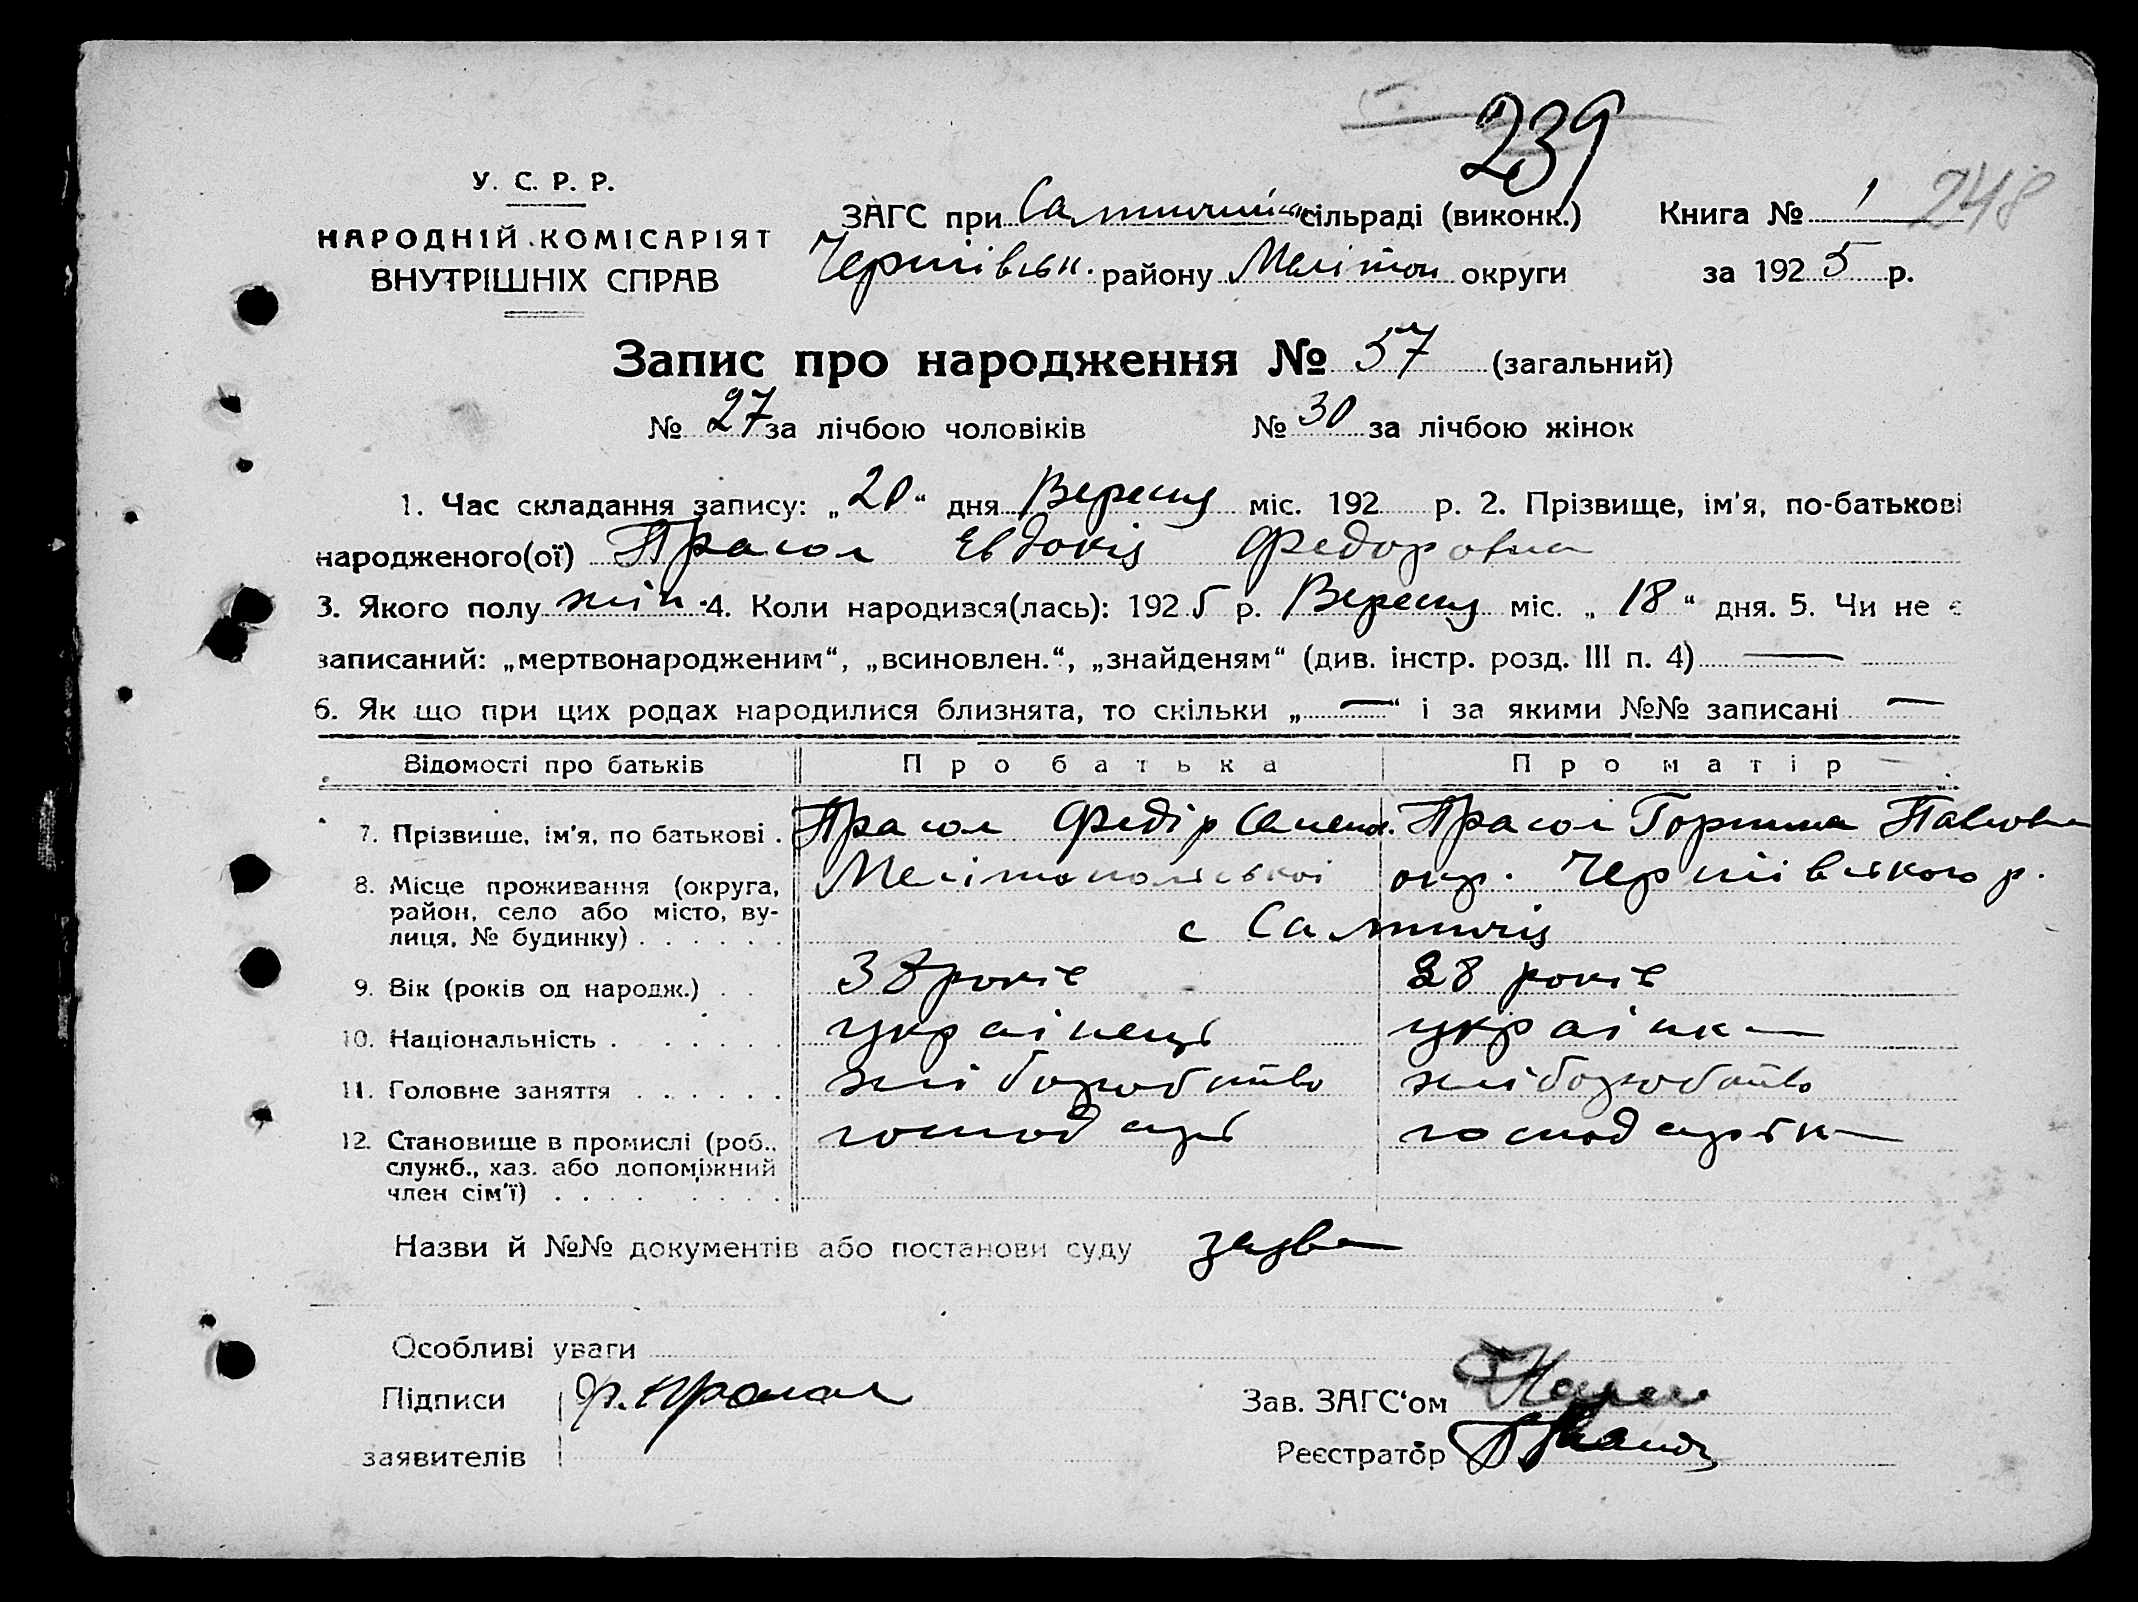 239
248
У. С. Р. Р.
НАРОДНІЙ КОМІСАРІЯТ
ВНУТРІШНІХ СПРАВ
ЗАГС при Салтичий сільраді (виконк.) Книга № 1
Чернівськ. району Мелітоп округи за 1925 р.
Запис про народження № 57 (загальний)
№ 27 за лічбою чоловіків № 30 за лічбою жінок
1. Час складання запису: „20“ дня Вересня міс. 192 р. 2. Прізвище, ім'я, по-батькові
народженого(ої) Прасол Евдокія Федоровна
3. Якого полу жін. 4. Коли народився(лась): 1925 р. Вересня міс. „18“ дня. 5. Чи не є
записаний: „мертвонародженим“, „всиновлен.“, „знайденям“ (див. інстр. розд. III п. 4) —
6. Як що при цих родах народилися близнята, то скільки „—“ і за якими №№ записані —
Відомості про батьків Про батька Про матір
7. Прізвище, ім'я, по батькові . Прасол Федір Семенов. Прасол Горпина Павловна
8. Місце проживання (округа, район, село або місто, вулиця, № будинку) . . . . . . Мелітопольської окр. Чернівського р.
с Салтичія
9. Вік (років од народж.) . . 38 років 38 років
10. Національність . . . . . . . українець українка
11. Головне заняття . . . . . . хліборобство хліборобство
12. Становище в промислі (роб., служб., хаз. або допоміжний член сім'ї) . . . . . . . . господарь господарька
Назви й №№ документів або постанови суду заява
Особливі уваги
Підписи Ф. Прасол Зав. ЗАГС'ом
заявителів Реєстратор